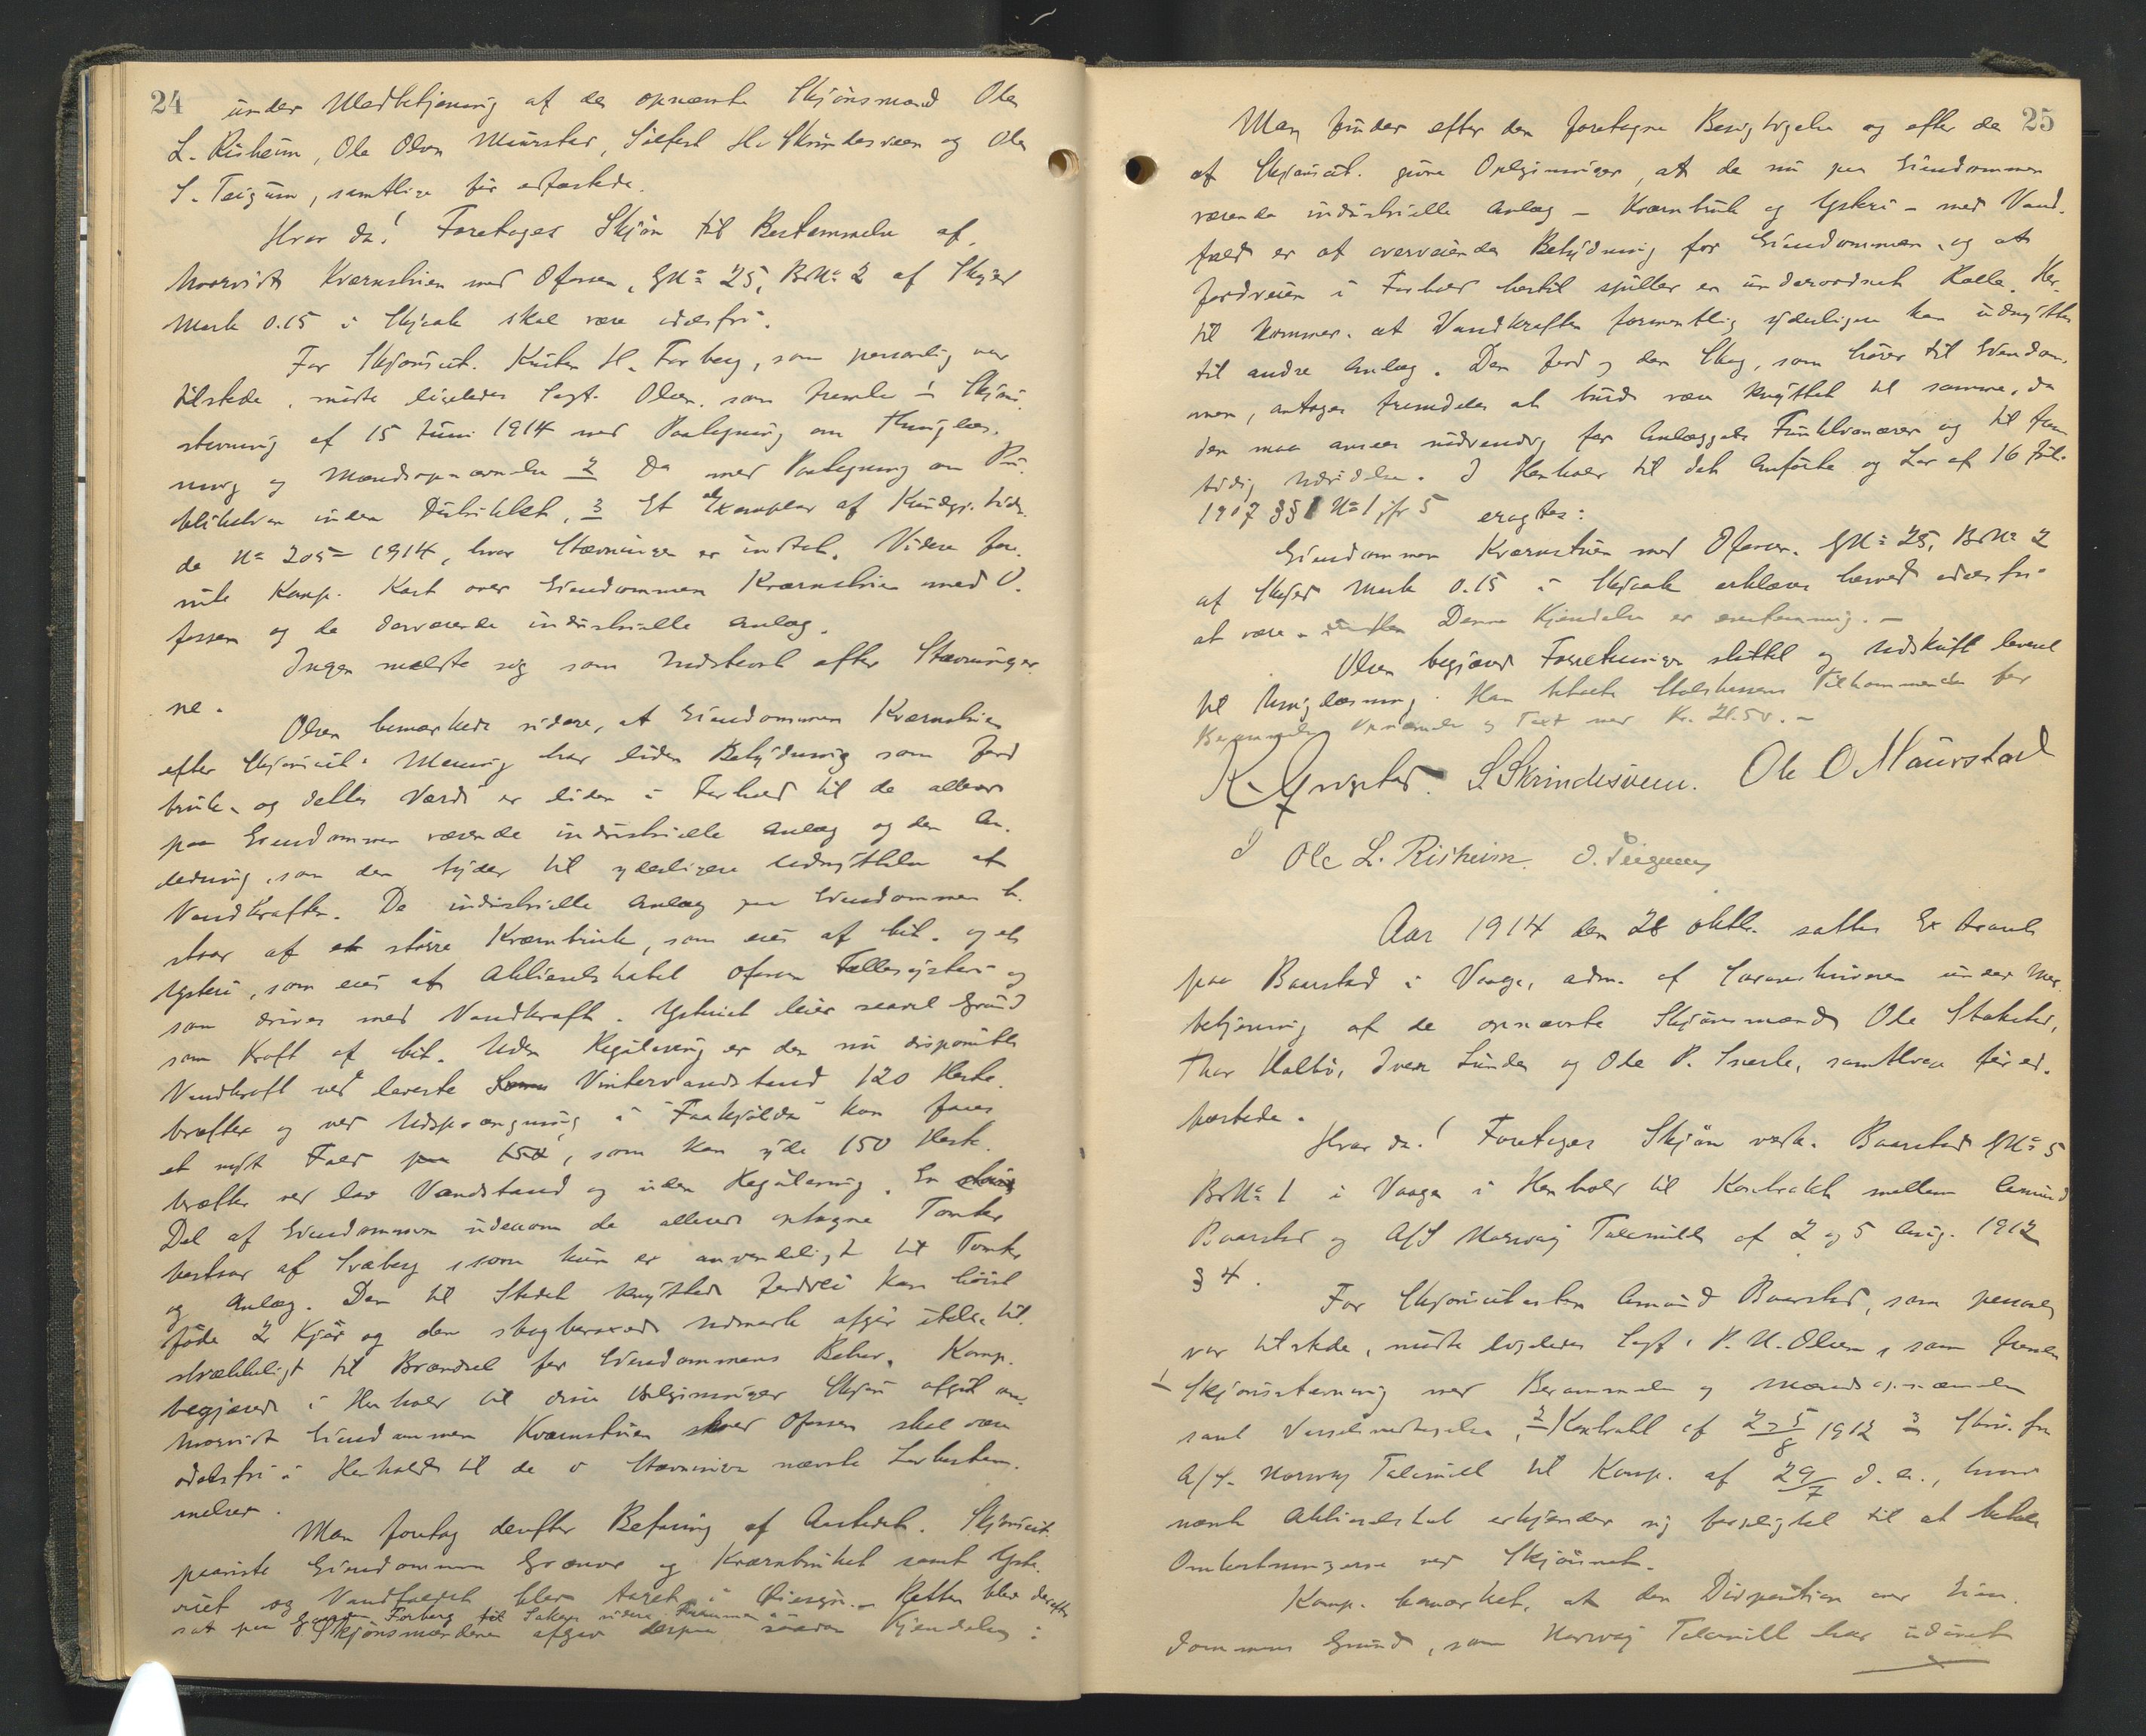 24
under Medbetjening af de opnævnte Skjönsmænd Ole
L. Risheim, Ole Olsen Maurstad, Sölfest H. Skrindesveen og Ole
S. Teigum, samtlige før edfæstede.
Hvor da! Foretages Skjön til Bestemmelse af,
hvorvidt Kværnstuen med Ofossen, GNo 25, BrNo 2 af Skyld
Mark 0.15 i Skjaak skal være odelsfri.
For Skjönscit. Kristen H. Forberg, som personlig var
tilstede, mödte ligeledes Sagf. Olsen, som fremla 1 Skjöns-
stevning af 15 Juni 1914 med Paategning om Thinglæs-
ning og Mændsopnævnelse 2 Do med Paategning om Pu-
blikation inden Distriktet, 3 Et Exemplar af Kundgj. tiden-
de No 205 - 1914, hvor Stævningen er indtat. Videre for-
viste Komp. Kart over Eiendommen Kværnstuen med O-
fossen og de derværende industrielle Anlæg.
Ingen meldte sig som Indstevnt efter Stævninger-
ne.
Olsen bemærkede videre, at Eiendommen Kværnstuen
efter Skjönscit.s Mening har liden Betydning som Jord-
bruk, og dettes Værdi er liden i Forhold til de allerede
paa Eiendommen værende industrielle Anlæg og den An-
ledning, som der byder til yderligere Udnyttelse af
Vandkraften. De industrielle Anlæg paa Eiendommen be-
staar af et större Kværnbruk, som eies af Cit. og et
Ysteri, som eies af Aktieselskabet Ofossen Fællesysteri og
som drives med Vandkraft. Ysteriet leier saavel Grund
som Kraft af Cit. Uden Regulering er den nu disponible
Vandkraft ved laveste Vintervandstand 120 Heste-
kræfter og ved Udsprængning i "Faakjölda" kan faaes
et nyt Fald, som kan yde 150 Heste-
kræfter ved lav Vandstand og uden Regulering. En
Del af Eiendommen udenom de allerede optagne Tomter
bestaar af Svaberg, som kun er anvendeligt til Tomter
og Anlæg. Den til Stedet knyttede Jordvei kan höist
föde 2 Kjör og den skogbevoxede Udmark afgir ikke til-
strækkeligt til Brændsel for Eiendommens Behov. Komp.
begjærede i Henhold til disse Oplysninger Skjön afgit om,
hvorvidt Eiendommen Kværnstuen med Ofossen skal være
odelsfri i Henhold til de i Stævningen nævnte Lovbestem-
melser.
Man foretog derefter Befaring af Aastedet. Skjönscit.
paaviste Eiendommens Grænser og Kværnbruket samt Yste-
riet og Vandfaldet blev taget i Öiesyn. Retten blev derefter
sat paa Gaarden Forberg til Sakens videre Fremme.
Skjönsmændene afgav derpaa saadan Kjendelse:
25
Man finder efter den foretagne Besigtigelse og efter de
af Skjönscit. givne Oplysninger, at de nu paa Eiendommen
værende industrielle Anlæg - Kværnbruk og Ysteri - med Vand-
fald er af overveiende Betydning for Eiendommen, og at
Jordveien i Forhold hertil spiller en underordnet Rolle. Her-
til kommer, at Vandkraften formentlig yderligere kan udnyttes
til andre Anlæg. Den Jord og den Skog, som hörer til Eiendom-
men, antages fremdeles at burde være knyttet til samme, da
den maa ansees nödvendig for Anlæggets Funktionærer og til frem-
tidig Udvidelse. I Henhold til det Anförte og Lov af 16 Juli
1907 §§ 1 No 1 jfr 5 eragtes:
Eiendommen Kværnstuen med Ofossen, GNo 25, BrNo 2
af Skyld Mark 0.15 i Skjaak erklæres herved odelsfri
at være. Denne Kjendelse er enstemmig. -
Olsen begjæred Forretningen sluttet og Udskrift leveret
til Thinglæsning. Han betalte Stedets Tilkommende for
Berammelse, Opnævnelse og Taxt med Kr. 21.50. -
S Skrindesveen. Ole O Maurstad
Ole L. Risheim. O. Teigum
Aar 1914 den 28 oktbr. sattes Extraret
paa Baarstad i Vaage, adm. af Sorenskriveren under Med-
betjening af de opnævnte Skjönsmænd Ole Stokstad,
Thor Valbö, Iver Sunde og Ole P. Snerle, samtlige før ed-
fæstede.
Hvor da! Foretoges Skjön vedk. Baarstad GNo 5
BrNo 1 i Vaage i Henhold til Kontrakt mellem Amund
Baarstad og A/S Norway Talcmill af 2 og 5 Aug. 1912
§ 4.
For Skjönscitanten Amund Baarstad, som personlig
var tilstede, mödte ligeledes Sagf. P. N. Olsen, som fremla
1 Skjönsstevning med Berammelse og Mændsopnævnelse
samt Varselsvedtagelse, 2 Kontrakt af 2 og 5/8 1912 3 Skriv. fra
A/S Norway Talcmill til Komp. af 29/7 d. a., hvori
nævnte Aktieselskab erkjender sig forpligtet til at betale
Omkostningerne ved Skjönnet.
Komp. bemærket, at den Disposition over Eien-
dommens Grund, som Norway Talcmill har udövet